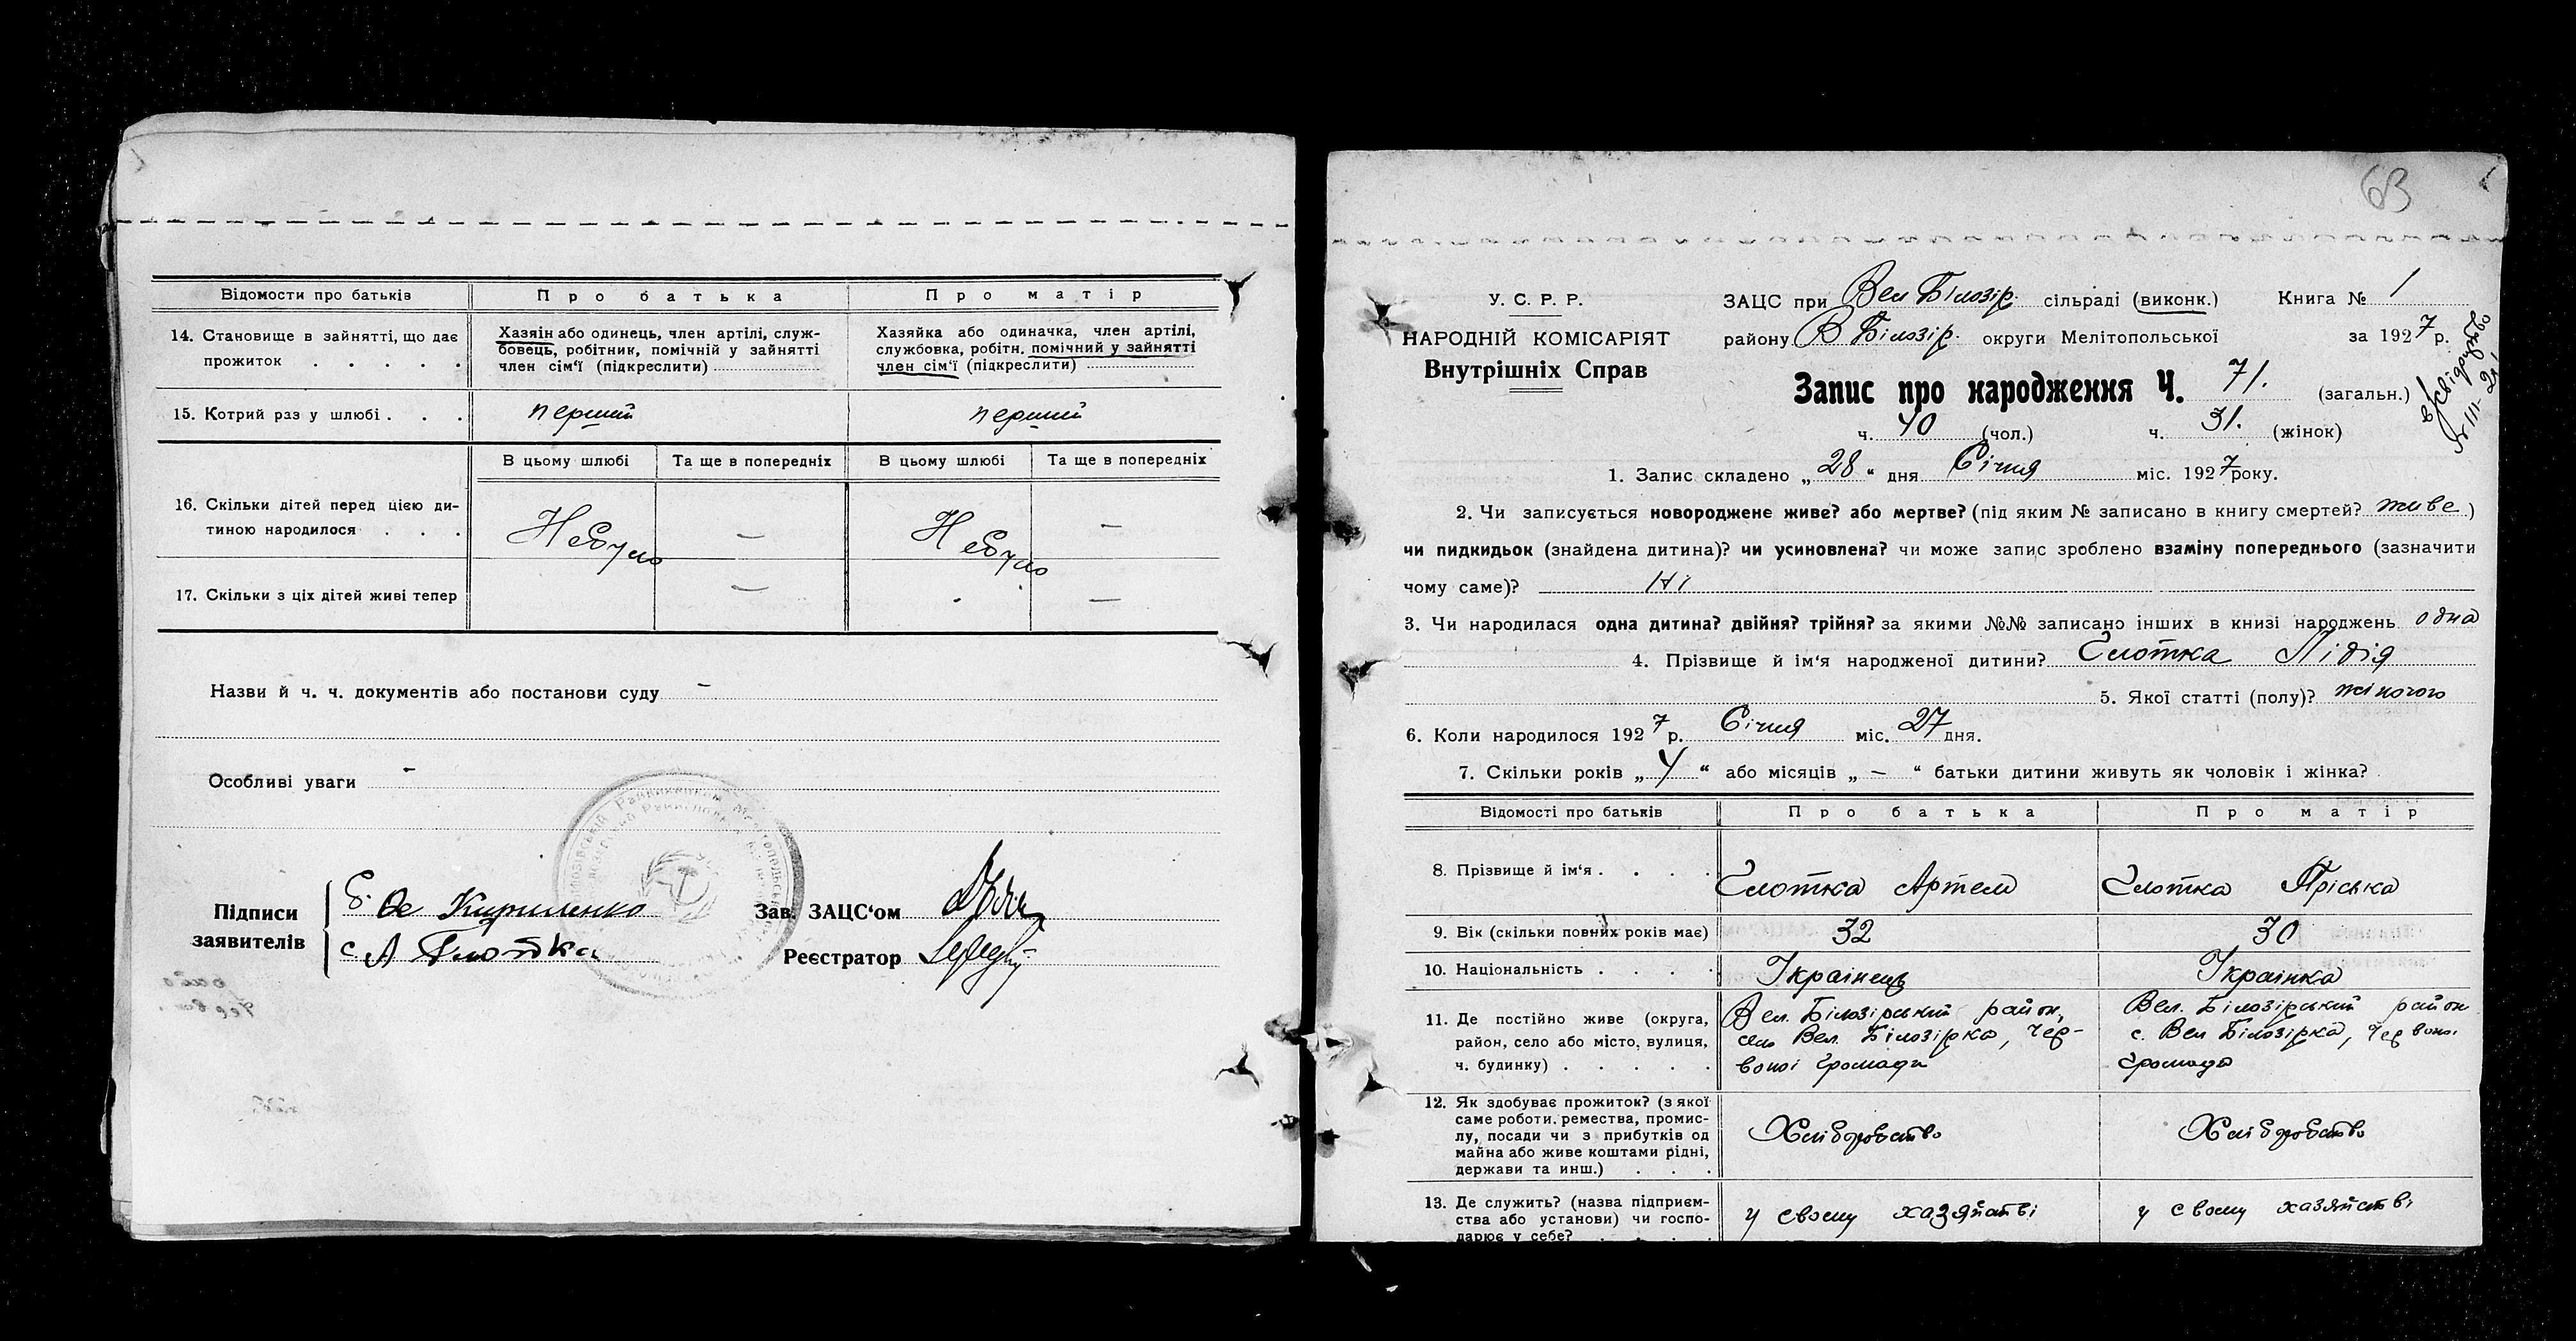 Відомости про батьків Про батька Про матір
14. Становище в зайнятті, що дає прожиток . . . . .
Хазяін або одинець, член артілі, служ-
бовець, робітник, помічній у зайнятті
член сім'ї (підкреслити)
Хазяйка або одиначка, член артілі,
службовка, робітн. помічний у зайнятті
член сім'ї (підкреслити)
15. Котрий раз у шлюбі . . . перший перший
В цьому шлюбі Та ще в попередніх В цьому шлюбі Та ще в попередніх
16. Скільки дітей перед цією ди-
тиною народилося . . . Небуло — Небуло —
17. Скільки з ціх дітей живі тепер — — —
Назви й ч. ч. документів або постанови суду —
Особливі уваги —
Підписи
заявителів
Кириленко
Зав. ЗАЦС'ом
Реєстратор
63
У. С. Р. Р.
НАРОДНІЙ КОМІСАРІЯТ
Внутрішніх Справ
ЗАЦС при Вел Білозір. сільраді (виконк.) Книга № 1
району В Білозір. округи Мелітопольської за 1927 р.
Запис про народження Ч. 71. (загальн.)
ч. 40 (чол.) ч. 31. (жінок)
1. Запис складено „28“ дня Січня міс. 1927 року.
2. Чи записується новороджене живе? або мертве? (під яким № записано в книгу смертей? живе)
чи пидкидьок (знайдена дитина)? чи усиновлена? чи може запис зроблено взаміну попереднього (зазначити
чому саме)? Ні
3. Чи народилася одна дитина? двійня? трійня? за якими №№ записано інших в книзі народжень одна
4. Прізвище й ім'я народженої дитини? Глотка Лідія
5. Якої статті (полу)? жіночого
6. Коли народилося 1927 р. Січня міс. 27 дня.
7. Скільки років „4“ або місяців „—“ батьки дитини живуть як чоловік і жінка?
Відомості про батьків Про батька Про матір
8. Прізвище й ім'я . . . . Глотка Артем Глотка Пріська
9. Вік (скільки повних років має) 32 30
10. Національність . . . . Українець Українка
11. Де постійно живе (округа,
район, село або місто, вулиця,
ч. будинку) . . . . .
Вел. Білозірський район,
село Вел. Білозірка, Чер-
воної громади
Вел. Білозірський район
с. Вел Білозірка, Червоної
громада
12. Як здобуває прожиток? (з якої
саме роботи, ремества, промис-
лу, посади чи з прибутків од
майна або живе коштами рідні,
держави та инш.) . . .
Хліборобство Хліборобство
13. Де служить? (назва підприєм-
ства або установи) чи госпо-
дарює у себе? . . . .
у своєму хазяйстві у своєму хазяйстві